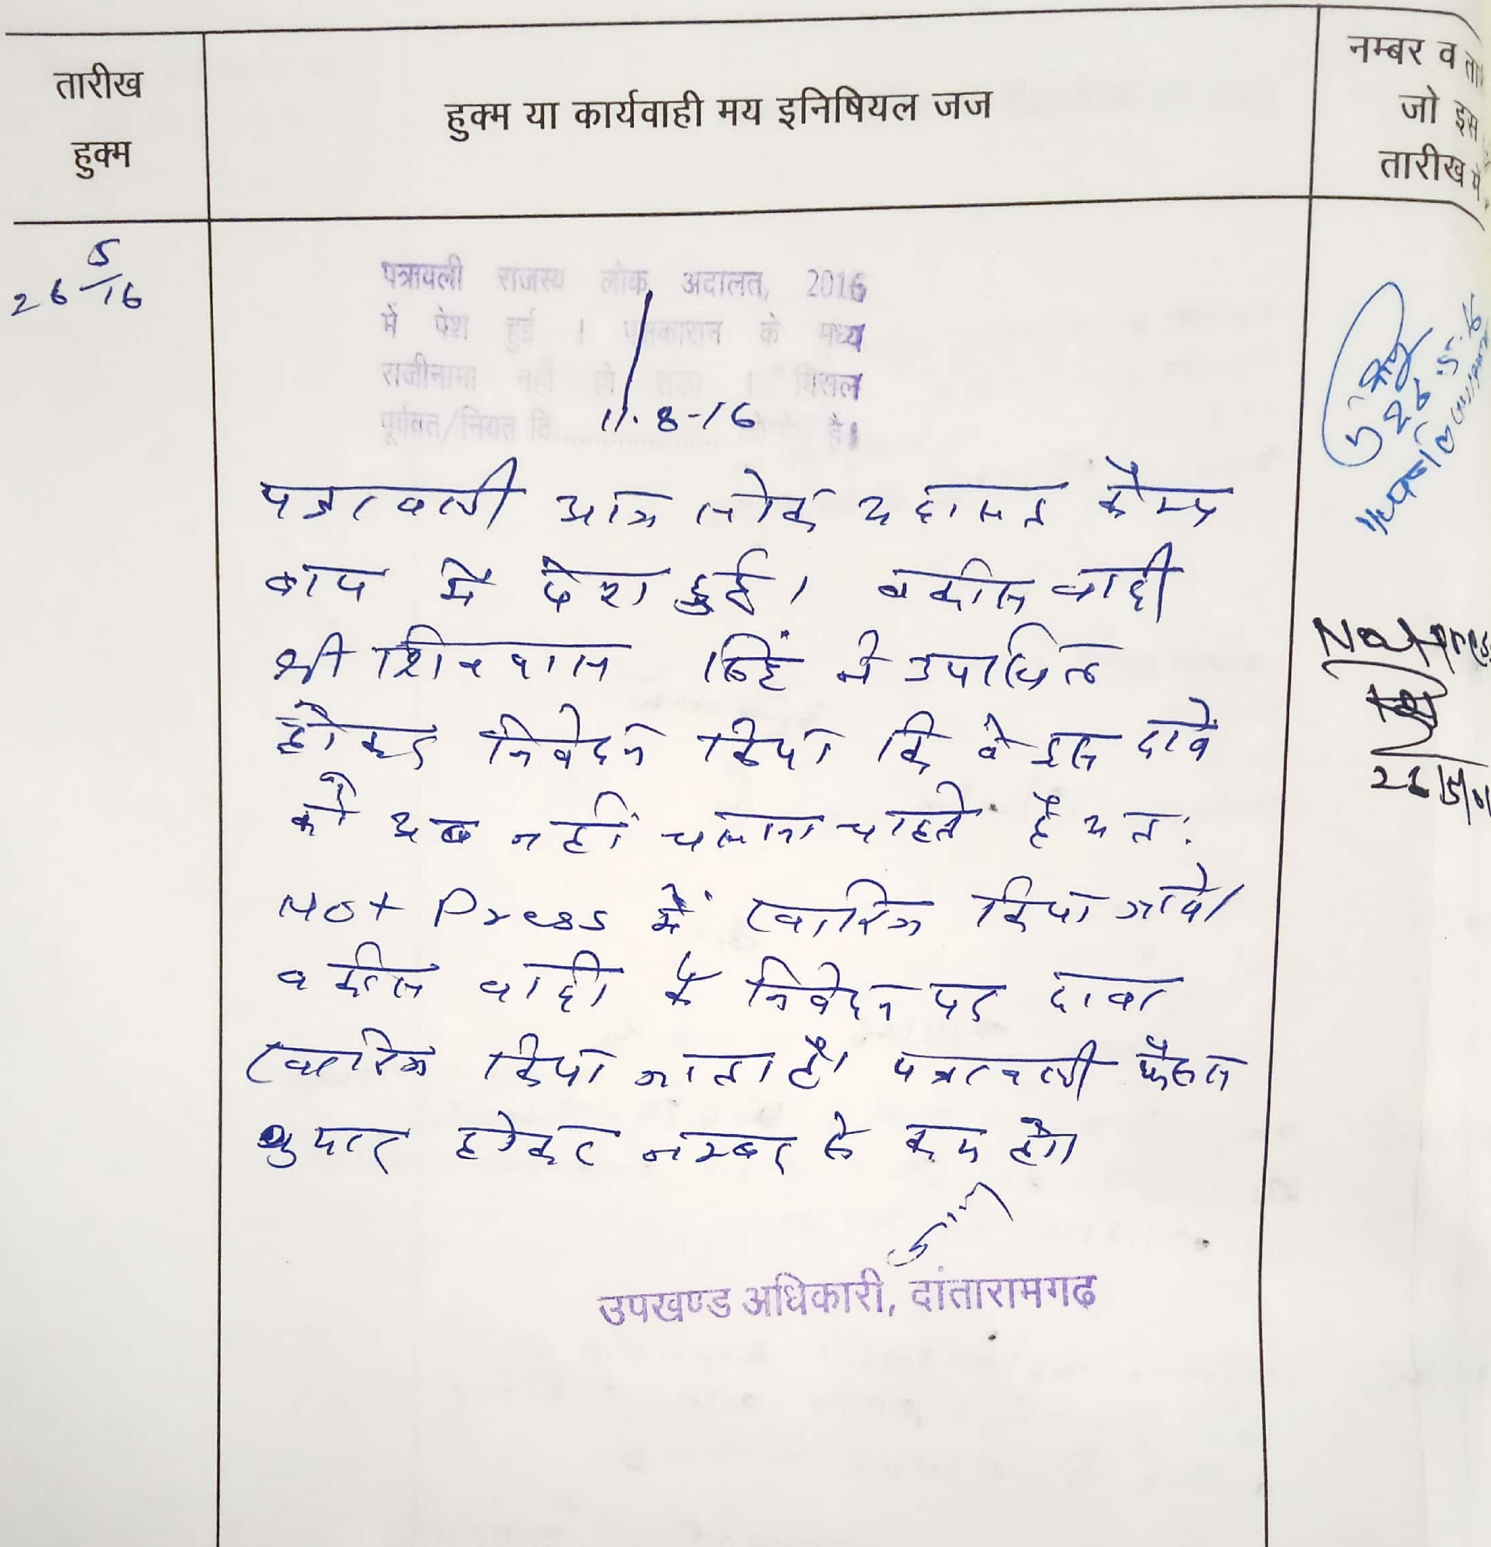 तारीख
हुक्म
हुक्म या कार्यवाही मय इनिषियल जज
नम्बर व
जो इस
तारीख में
26 5/16
पत्रावली राजस्व लोक अदालत, 2016
में पेश हुई । पक्षकारान के मध्य
राजीनामा नहीं हो सका । मिसल
पूर्ववत/नियत दि.................... है।
11.8-16
पत्रावली आज लोक अदालत कैम्प
बाय में पेश हुई। वकील वादी
श्री शिवपाल सिंह ने उपस्थित
होकर निवेदन किया कि वे इस दावे
को अब नहीं चलाना चाहते है अतः
Not Press में खारिज किया जावे।
वकील वादी के निवेदन पर दावा
खारिज किया जाता है। पत्रावली फैसल
शुमार होकर नम्बर से कम हो।
उपखण्ड अधिकारी, दांतारामगढ
26.5.16
Not Press